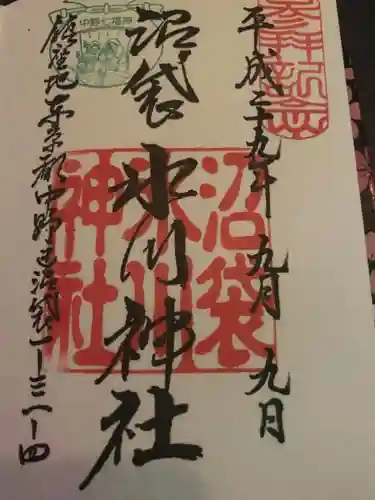 参拝記念
平成二十九年 九月 九日
沼袋 氷川神社
沼袋
氷川
神社
中野七福神
鎮座地 東京都中野区沼袋一ー三一ー四